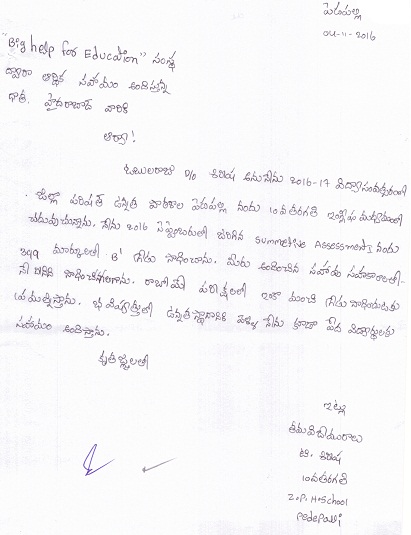 పెదపల్లి
04-11-2016
"Big help for Education" సంస్థ
ద్వారా ఆర్థిక సహాయం అందిస్తున్న
దాత. హైదరాబాద్ వారికి
ఆర్యా!
D/o శిరిష అను నేను 2016-17 విద్యాసంవత్సరంలో
జిల్లా పరిషత్ ఉన్నత పాఠశాల పెదపల్లి నందు 10వ తరగతి ఇంగ్లీషు మీడియంలో
చదువుచున్నాను. నేను 2016 సెప్టెంబరులో జరిగిన Summative Assessment-I నందు
399 మార్కులతో B+ గ్రేడు సాధించాను. మీరు అందించిన సహాయ సహకారాలతో
నేను దీనిని సాధించగలిగాను. రాబోయే పరీక్షలలో ఇంకా మంచి గ్రేడు సాధించుటకు
ప్రయత్నిస్తాను. భవిష్యత్తులో ఉన్నతస్థానానికి వెళ్ళి నేను కూడా పేద విద్యార్థులకు
సహాయం అందిస్తాను.
కృతజ్ఞతలతో
ఇట్లు
తమ విధేయురాలు
టి. శిరిష
10వ తరగతి
Z.P.H.School
Pedepalli